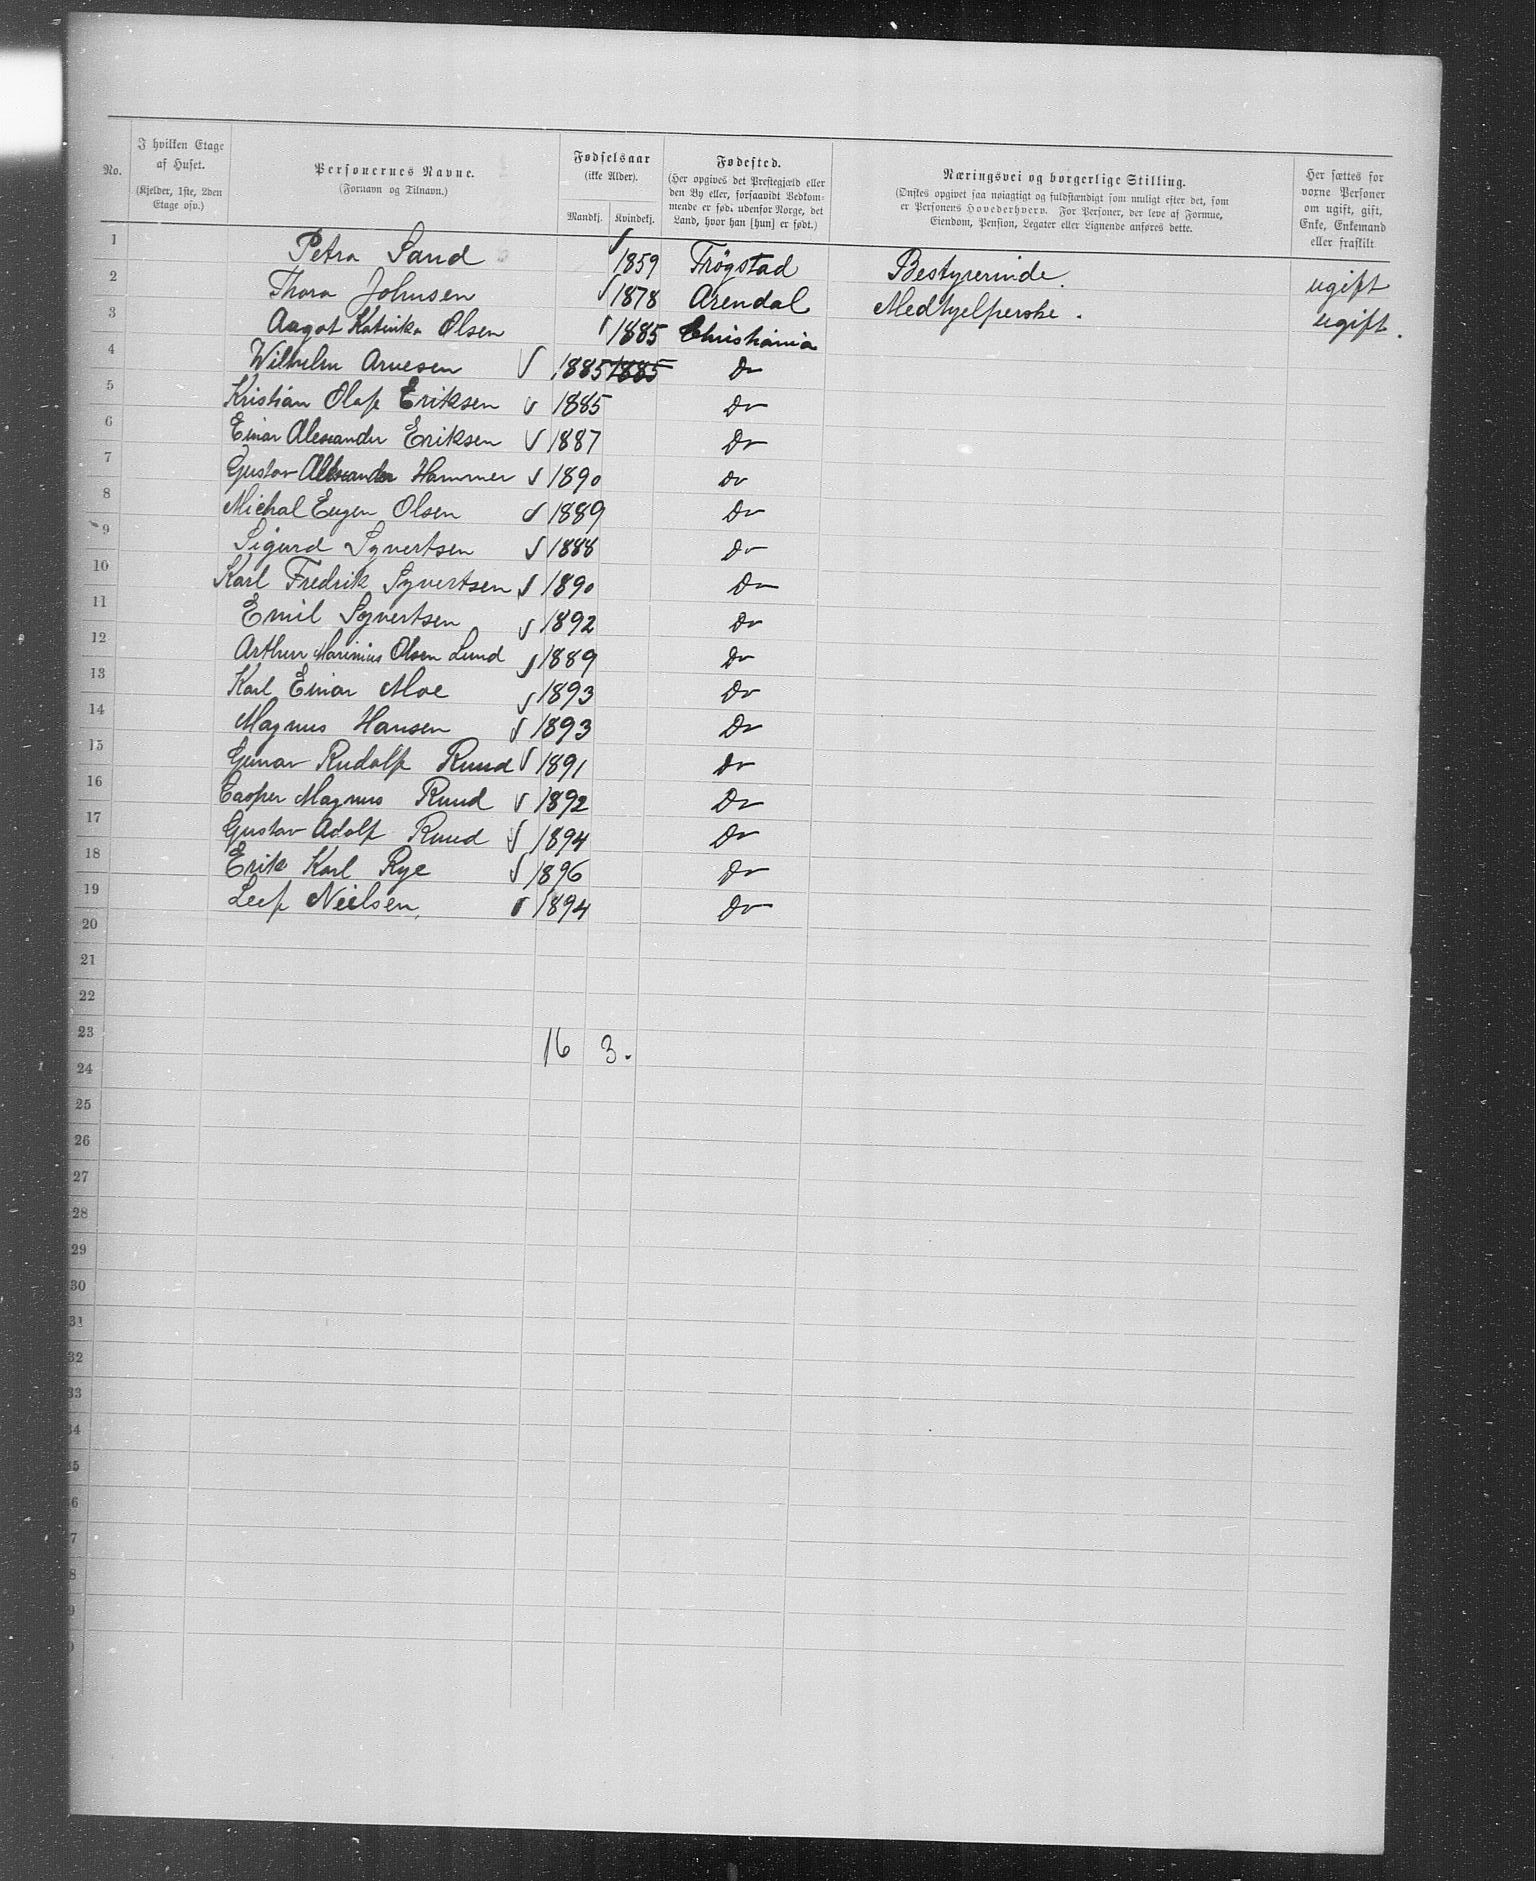 No. | I hvilken Etage af Huset. (Kjelder, 1ste, 2den Etage osv.) | Personernes Navne. (Fornavn og Tilnavn.) | Fødselsaar (ikke Alder). Mandkj. | Kvindekj. | Fødested. (Her opgives det Prestegjæld eller den By eller, forsaavidt Vedkommende er fød. udenfor Norge, det Land, hvor han [hun] er født.) | Næringsvei og borgerlige Stilling. (Ønskes opgivet saa nøiagtigt og fuldstændigt som muligt efter det, som er Personens Hovederhverv. For Personer, der leve af Formue, Eiendom, Pension, Legater eller Lignende anføres dette.) | Her sættes for voxne Personer om ugift, gift, Enke, Enkemand eller fraskilt
1 Petra Sand 1859 Trøgstad Bestyrerinde. ugift
2 Thora Johnsen 1878 Arendal Medhjelperske. ugift.
3 Aagot Katinka Olsen 1885 Christiania
4 Wilhelm Arnesen 1885 1885 Do
5 Kristian Olaf Eriksen 1885 Do
6 Einar Alexander Eriksen 1887 Do
7 Gustav Alexander Hammer 1890 Do
8 Michal Eugen Olsen 1889 Do
9 Sigurd Syvertsen 1888 Do
10 Karl Fredrik Syvertsen 1890 Do
11 Emil Syvertsen 1892 Do
12 Arthur Marinius Olsen Lund 1889 Do
13 Karl Einar Moe 1893 Do
14 Magnus Hansen 1893 Do
15 Gunar Rudolf Ruud 1891 Do
16 Casper Magnus Ruud 1892 Do
17 Gustav Adolf Ruud 1894 Do
18 Erik Karl Rye 1896 Do
19 Leif Nielsen. 1894 Do
20
21
22
23 16 3.
24
25
26
27
28
29
30
31
32
33
34
35
6
7
8
9
0